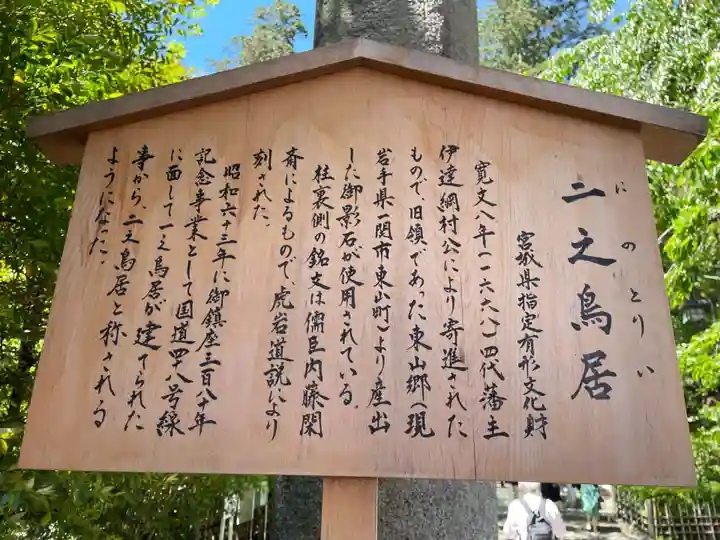 二之鳥居
にのとりい
宮城県指定有形文化財
寛文八年(一六六八)四代藩主
伊達綱村公により寄進された
もので、旧領であった東山郷(現
岩手県一関市東山町)より産出
した御影石が使用されている。
柱裏側の銘文は儒臣内藤閑
斎によるもので、虎岩道説により
刻された。
昭和六十三年に御鎮座三百八十年
記念事業として国道四十八号線
に面して一之鳥居が建てられた
事から、二之鳥居と称される
ようになった。